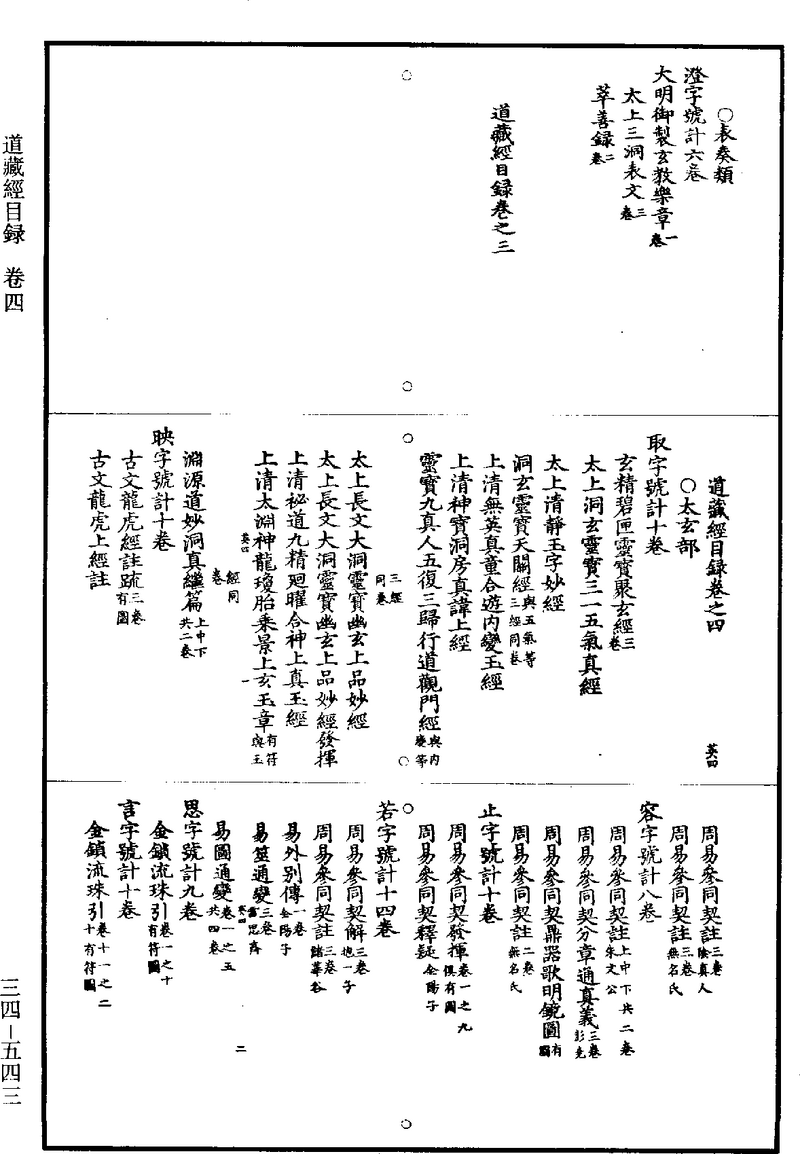 ○表奏類
澄字號計六卷
大明御製玄教樂章一卷
太上三洞表文三卷
萃善録二卷
道藏經目録卷之三
道藏經目録卷之四
英四
○太玄部
取字號計十卷
玄精碧匣靈寶聚玄經三卷
太上洞玄靈寶三一五氣真經
太上清靜玉字妙經
洞玄靈寶天關經與五氣等三經同卷
上清無英真童合遊內變玉經
上清神寶洞房真諱上經
靈寶九真人五復三歸行道觀門經與內變等
三經同卷
太上長文大洞靈寶幽玄上品妙經
太上長文大洞靈寶幽玄上品妙經發揮
上清祕道九精廻曜合神上真玉經
上清太淵神龍瓊胎乘景上玄玉章有符與玉
英四
一
經同卷
淵源道妙洞真繼篇上中下共二卷
映字號計十卷
古文龍虎經註疏三卷有圖
古文龍虎上經註
周易參同契註三卷陰真人
周易參同契註三卷無名氏
容字號計八卷
周易參同契註上中下共二卷朱文公
周易參同契分章通真義三卷彭曉
周易參同契鼎器歌明鏡圖有圖
周易參同契註二卷無名氏
止字號計十卷
周易參同契發揮卷一之九俱有圖
周易參同契釋疑全陽子
若字號計十四卷
周易參同契解三卷抱一子
周易參同契註三卷儲華谷
易外別傳一卷全陽子
易筮通變三卷雷思齊
英四
二
易圖通變卷一之五共四卷
思字號計九卷
金鎖流珠引卷一之十有符圖
言字號計十卷
金鎖流珠引卷十一之二十有符圖
道藏經目録 卷四
三四－五四三